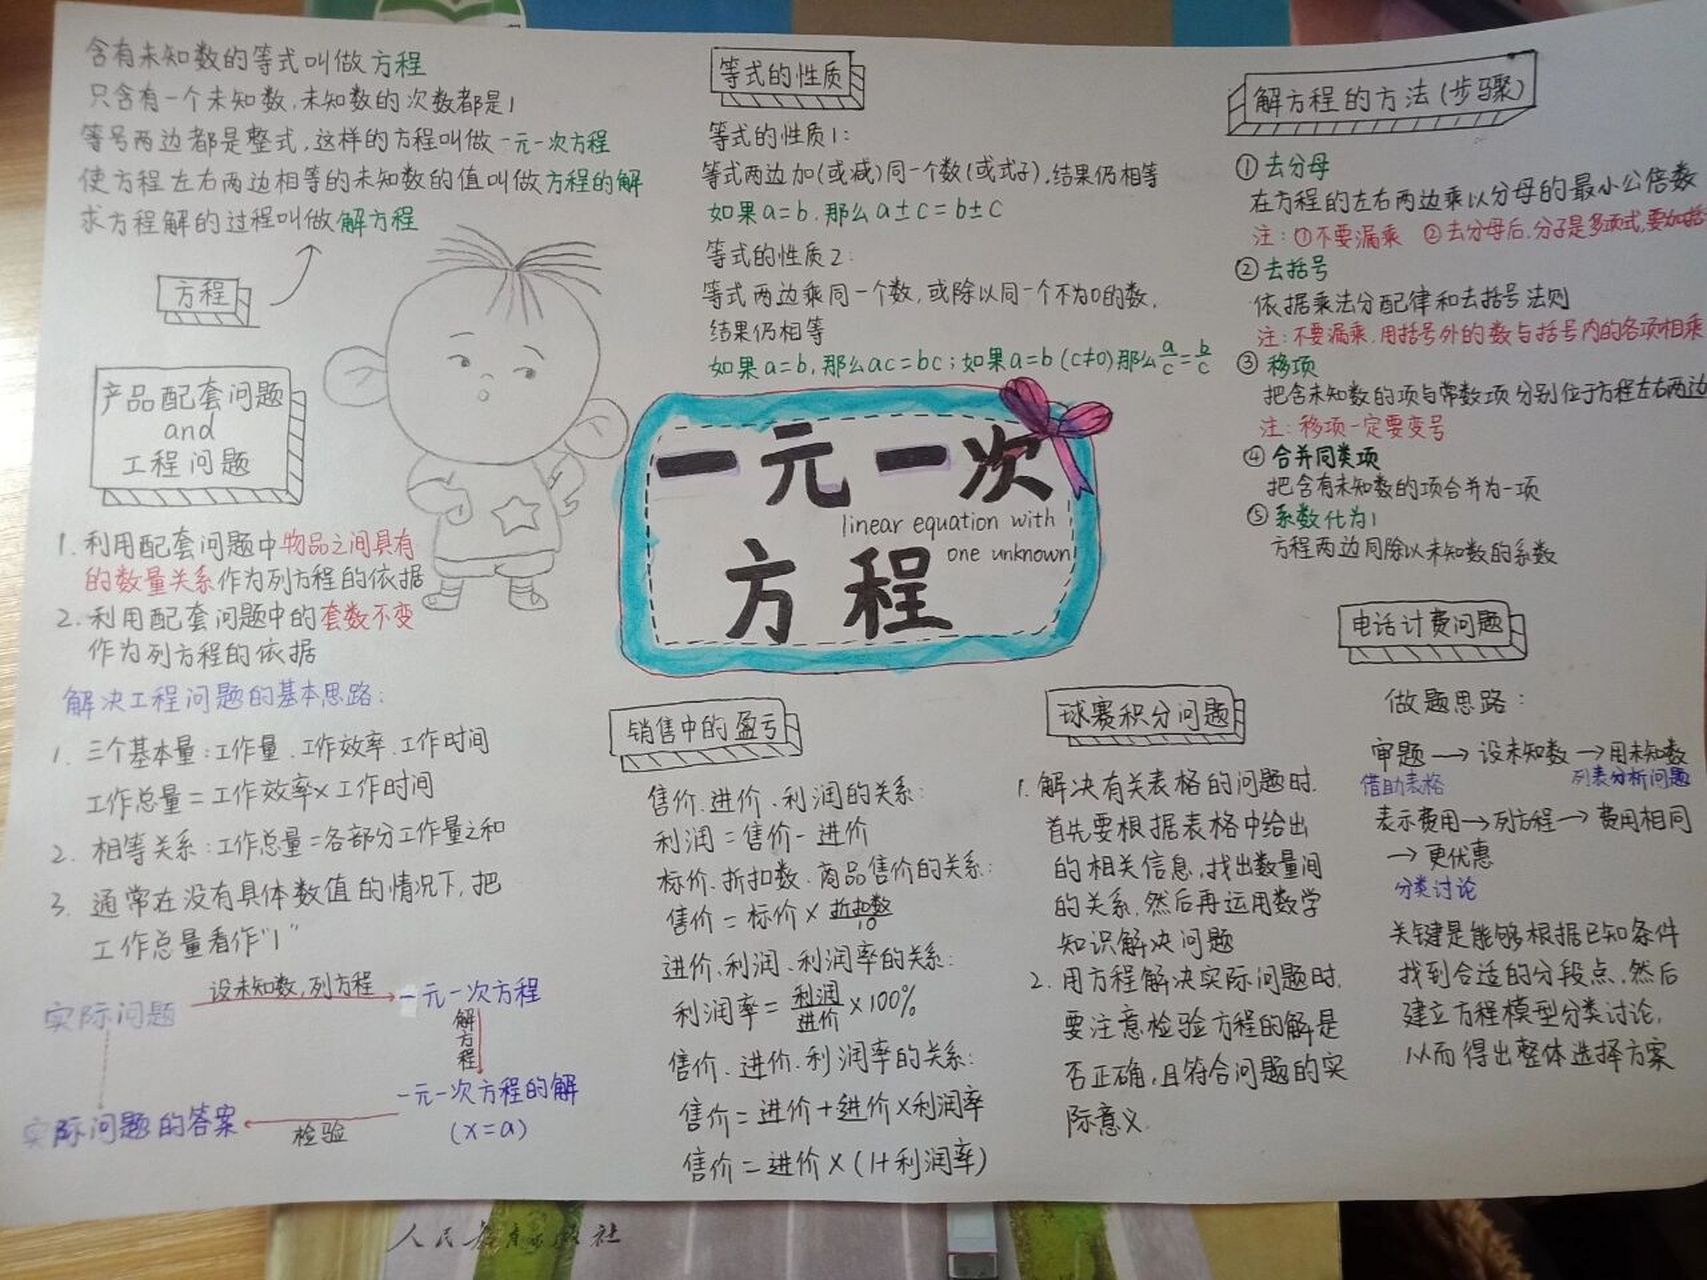 含有未知数的等式叫做方程
只含有一个未知数,未知数的次数都是1
等号两边都是整式,这样的方程叫做一元一次方程
使方程左右两边相等的未知数的值叫做方程的解
求方程解的过程叫做解方程
方程
产品配套问题
and
工程问题
1. 利用配套问题中物品之间具有
的数量关系作为列方程的依据
2. 利用配套问题中的套数不变
作为列方程的依据
解决工程问题的基本思路:
1. 三个基本量:工作量、工作效率、工作时间
工作总量=工作效率×工作时间
2. 相等关系:工作总量=各部分工作量之和
3. 通常在没有具体数值的情况下,把
工作总量看作“1”
实际问题 设未知数,列方程 一元一次方程
解方程
一元一次方程的解
(x=a)
检验
实际问题的答案
等式的性质
等式的性质1:
等式两边加(或减)同一个数(或式子),结果仍相等
如果a=b,那么a±c=b±c
等式的性质2:
等式两边乘同一个数,或除以同一个不为0的数,
结果仍相等
如果a=b,那么ac=bc;如果a=b(c≠0)那么a/c=b/c
一元一次
linear equation with
one unknown
方程
销售中的盈亏
售价、进价、利润的关系:
利润=售价-进价
标价、折扣数、商品售价的关系:
售价=标价×折扣数/10
进价、利润、利润率的关系:
利润率=利润/进价×100%
售价、进价、利润率的关系:
售价=进价+进价×利润率
售价=进价×(1+利润率)
球赛积分问题
1. 解决有关表格的问题时,
首先要根据表格中给出
的相关信息,找出数量间
的关系,然后再运用数学
知识解决问题
2. 用方程解决实际问题时,
要注意检验方程的解是
否正确,且符合问题的实
际意义.
解方程的方法(步骤)
① 去分母
在方程的左右两边乘以分母的最小公倍数
注:①不要漏乘 ②去分母后,分子是多项式,要加括
② 去括号
依据乘法分配律和去括号法则
注:不要漏乘,用括号外的数与括号内的各项相乘
③ 移项
把含未知数的项与常数项分别位于方程左右两边
注:移项一定要变号
④ 合并同类项
把含有未知数的项合并为一项
⑤ 系数化为1
方程两边同除以未知数的系数
电话计费问题
做题思路:
审题→设未知数→用未知数
借助表格 列表分析问题
表示费用→列方程→费用相同
→更优惠
分类讨论
关键是能够根据已知条件
找到合适的分段点,然后
建立方程模型分类讨论,
从而得出整体选择方案
人民教育出版社